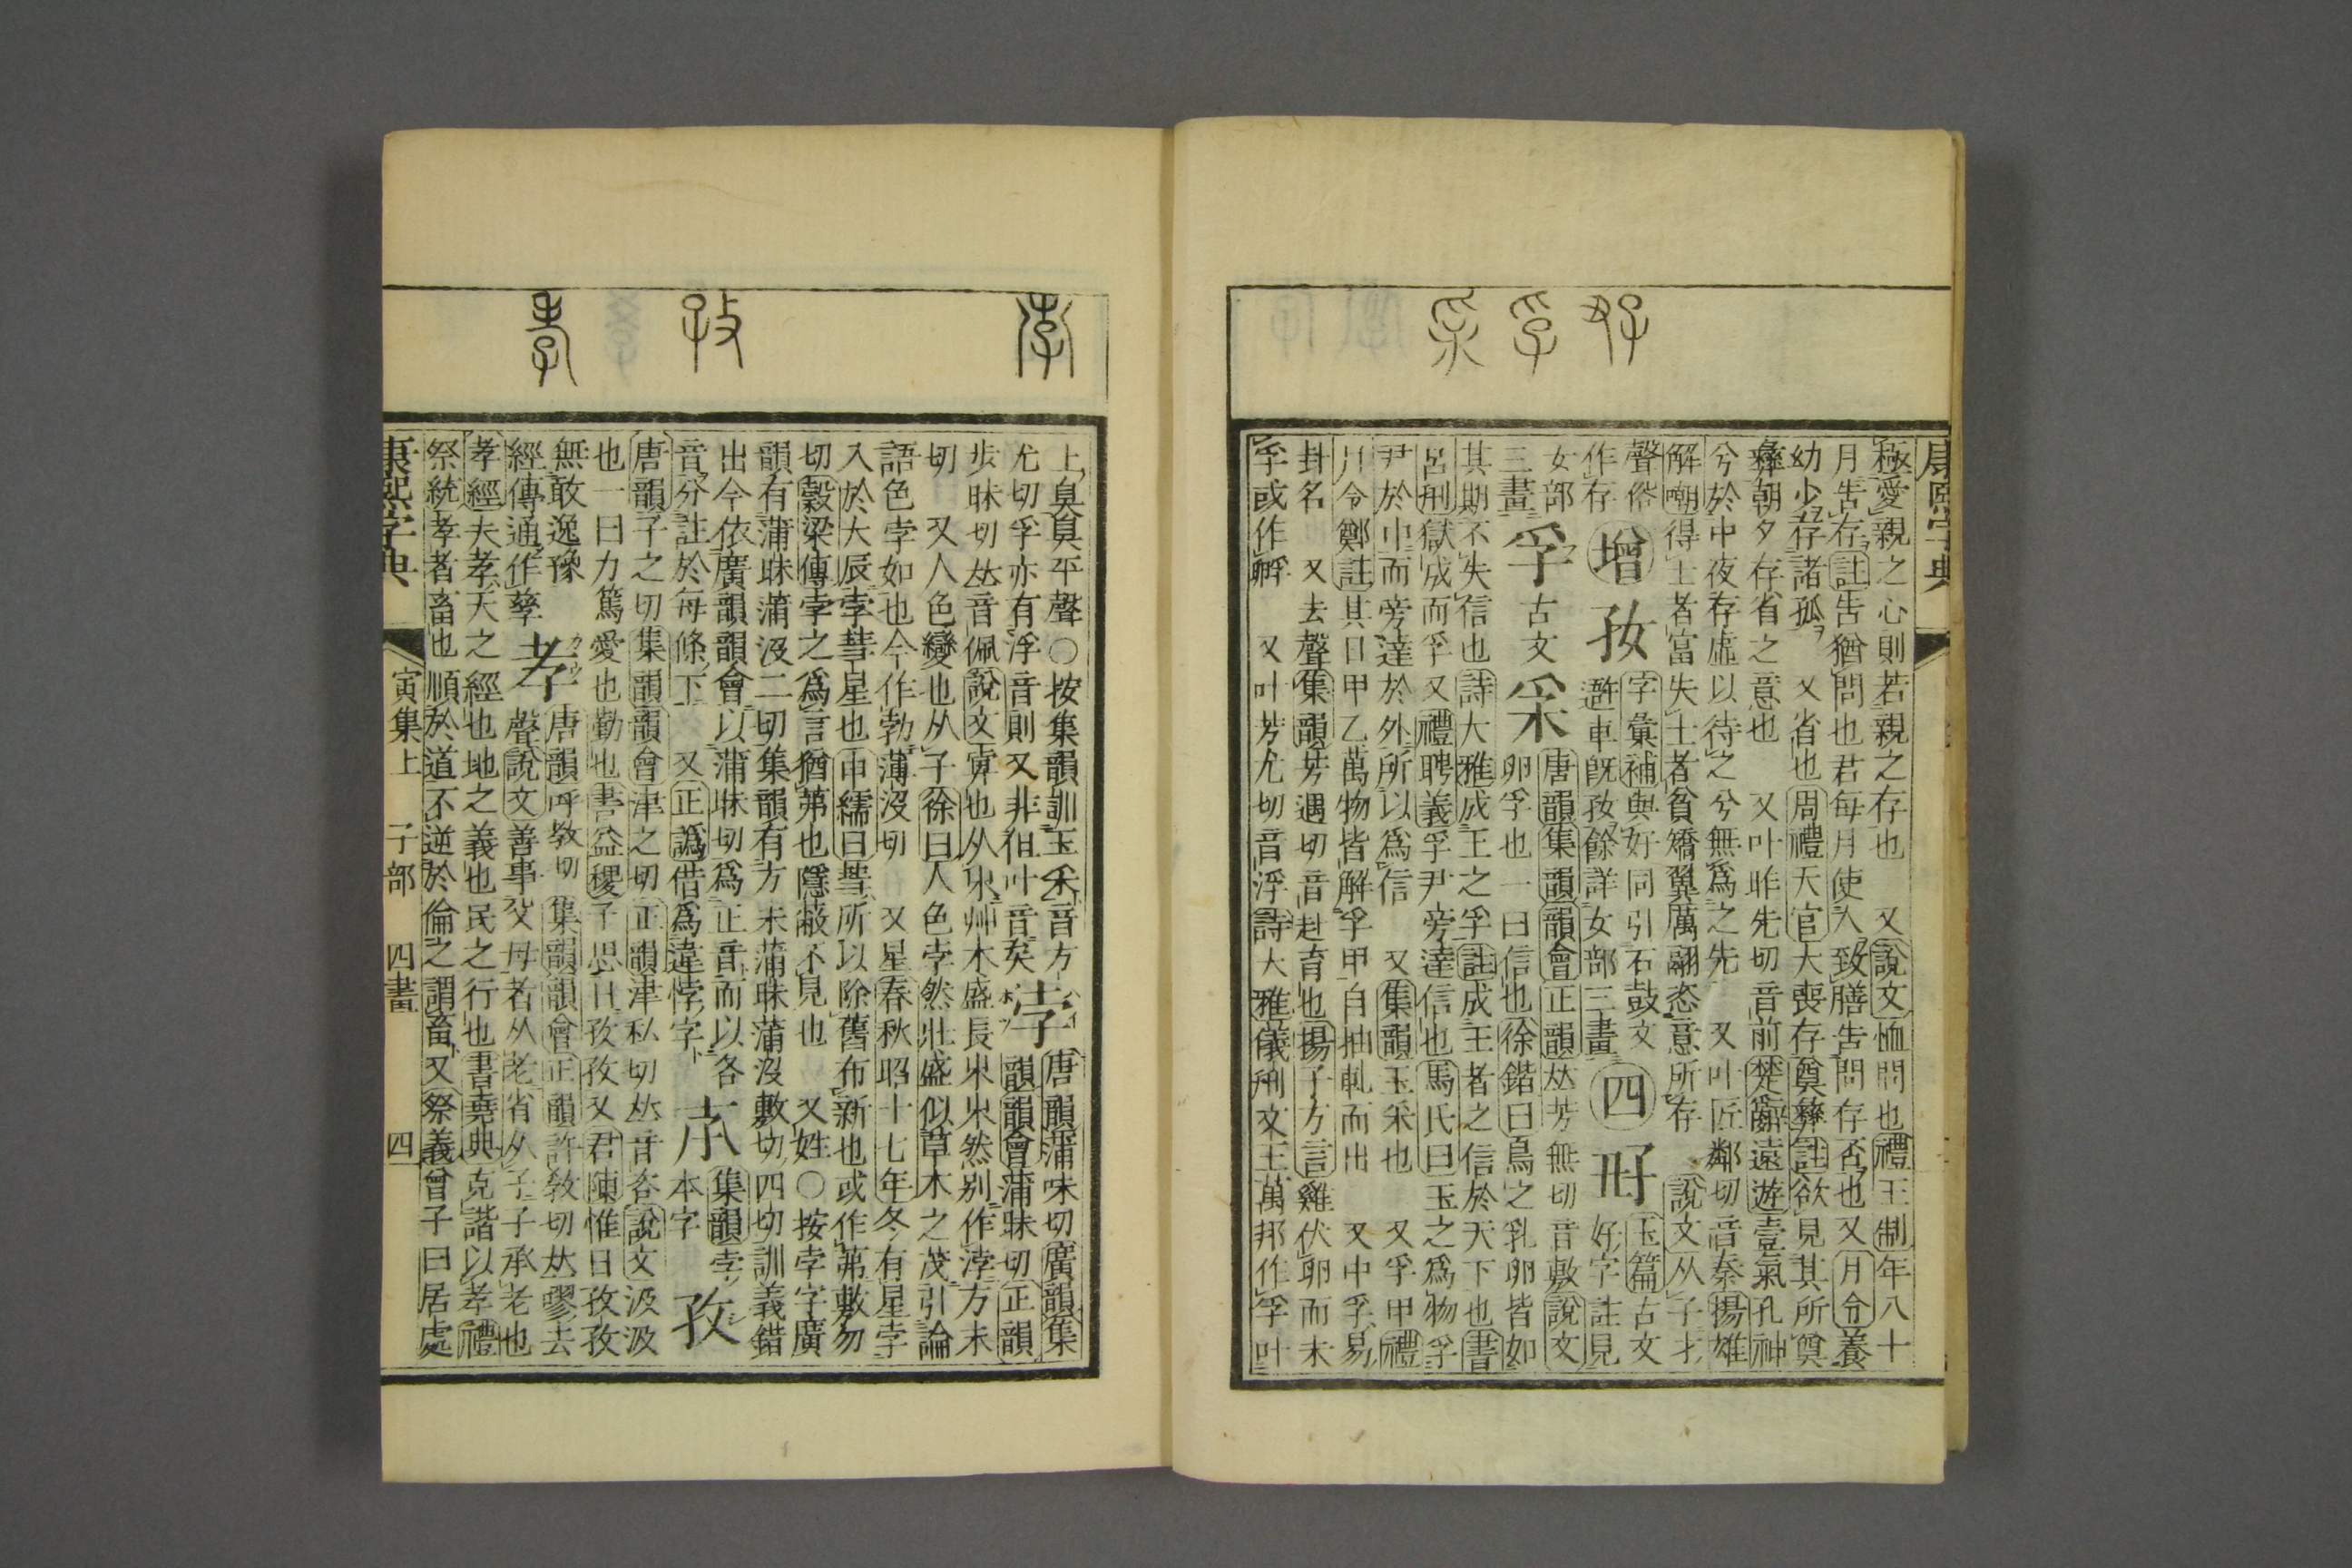 康熙字典
極愛親之心則若親之存也 又說文恤問也禮王制年八十
月告存註告猶問也君每月使人致膳告問存否也又月令養
幼少存諸孤 又省也周禮天官大喪存奠彝註欲見其所奠
彝朝夕存省之意也 又叶昨先切音前楚辭遠遊壹氣孔神
兮於中夜存虛以待之兮無爲之先 又叶匠鄰切音秦揚雄
解嘲得士者富失士者貧矯翼厲翮恣意所存 說文从子才
聲俗
作存
增
㜾
字彙補與好同引石鼓文
遊車旣㜾餘詳女部三畫
四
玉篇古文
好字註見
女部
三畫
孚
古文
𤓽
唐韻集韻韻會正韻𠀤芳無切音敷說文
卵孚也一曰信也徐鍇曰鳥之乳卵皆如
其期不失信也詩大雅成王之孚註成王者之信於天下也書
呂刑獄成而孚又禮聘義孚尹旁達信也馬氏曰玉之爲物孚
尹於中而旁達於外所以爲信 又集韻玉采也 又孚甲禮
月令鄭註其日甲乙萬物皆解孚甲自抽軋而出 又中孚易
卦名 又去聲集韻芳遇切音赴育也揚子方言雞伏卵而未
孚或作孵 又叶芳尤切音浮詩大雅儀刑文王萬邦作孚叶
上臭臭平聲○按集韻訓玉采音方
尤切孚亦有浮音則又非但叶音矣
孛
唐韻蒲昧切廣韻集
韻韻會蒲昧切正韻
步昧切𠀤音佩說文𡴀也从𣎵艸木盛長𣎵𣎵然别作浡方未
切 又人色變也从子徐曰人色孛然壯盛似草木之茂引論
語色孛如也今作勃薄沒切 又星春秋昭十七年冬有星孛
入於大辰孛彗星也申繻曰彗所以除舊布新也或作茀敷勿
切穀梁傳孛之爲言猶茀也隱蔽不見也 又姓○按孛字廣
韻有蒲昧蒲沒二切集韻有方未蒲昧蒲沒敷勿四切訓義錯
出今依廣韻韻會以蒲昧切爲正音而以各
音分註於每條下 又正譌借爲違悖字
𣎵
集韻孛
本字
孜
唐韻子之切集韻韻會津之切正韻津私切𠀤音咨說文汲汲
也一曰力篤愛也勤也書益稷予思日孜孜又君陳惟日孜孜
無敢逸豫
經傳通作孳
孝
唐韻呼敎切集韻韻會正韻許敎切𠀤嘐去
聲說文善事父母者从老省从子子承老也
孝經夫孝天之經也地之義也民之行也書堯典克諧以孝禮
祭統孝者畜也順於道不逆於倫之謂畜又祭義曾子曰居處
康熙字典 寅集上 子部 四畫 四